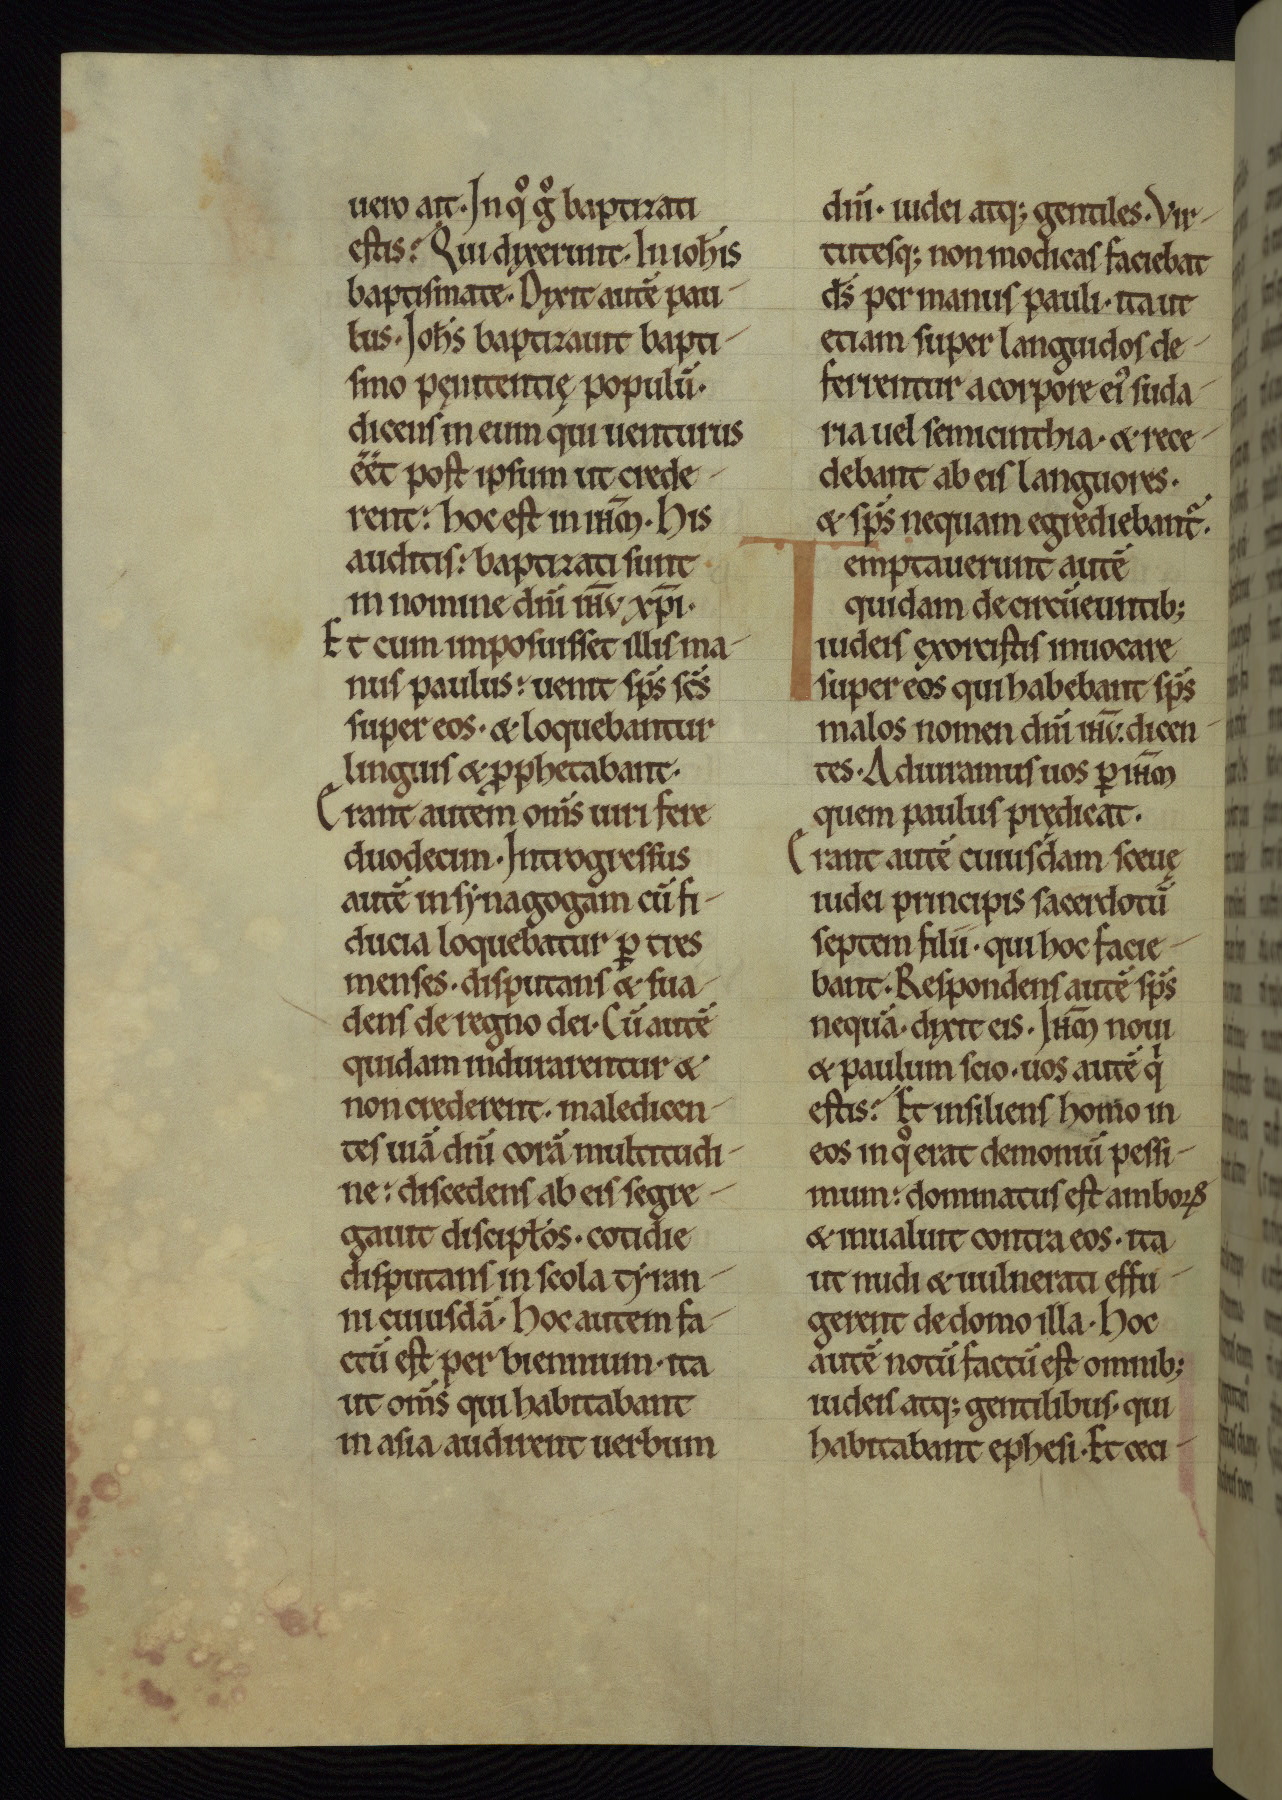 uero ait. In qͦ gͦ baptizati
estis? Qui dixerunt. In ioh̄is
baptismate. Dixit autē pau-
lus. Joh̄s baptizauit bapti-
smo pęnitentię populū.
dicens in eum qui uenturus
eēt post ipsum ut crede-
rent: hoc est in ih̄m. His
auditis: baptizati sunt
in nomine dn̄i ih̄v xp̄i.
Et cum imposuisset illis ma-
nus paulus: uenit sp̄s sc̄s
super eos. & loquebantur
linguis & ꝓphetabant.
Erant autem om̄s uiri fere
duodecim. Introgressus
autē in synagogam cū fi-
ducia loquebatur ꝑ tres
menses. disputans & sua-
dens de regno dei. Cū autē
quidam indurarentur &
non crederent. maledicen-
tes uiā dn̄i corā multitudi-
ne: discedens ab eis segre-
gauit discipłos. cotidie
disputans in scola tyran-
ni cuiusdā. Hoc autem fa-
ctū est per biennium. ita
ut om̄s qui habitabant
in asia audirent uerbum
dn̄i. iudei atq; gentiles. Vir-
tutesq; non modicas faciebat
ds̄ per manus pauli. ita ut
etiam super languidos de-
ferrentur a corpore eiꝰ suda-
ria uel semicinthia. & rece-
debant ab eis languores.
& sp̄s nequam egrediebant᷑.
Temptauerunt autē
quidam de circūeuntib;
iudeis exorcistis inuocare
super eos qui habebant sp̄s
malos nomen dn̄i ih̄v. dicen-
tes. Adiuramus uos ꝑ ih̄m
quem paulus prędicat.
Erant autē cuiusdam sceuę
iudei principis sacerdotū
septem filii. qui hoc facie-
bant. Respondens autē sp̄s
nequā. dixit eis. Ih̄m noui
& paulum scio. uos autē qͥ
estis? Et insiliens homo in
eos in qͦ erat demoniū pessi-
mum: dominatus est amboꝝ
& inualuit contra eos. ita
ut nudi & uulnerati effu-
gerent de domo illa. Hoc
autē notū factū est omnib;
iudeis atq; gentilibus. qui
habitabant ephesi. Et ceci-